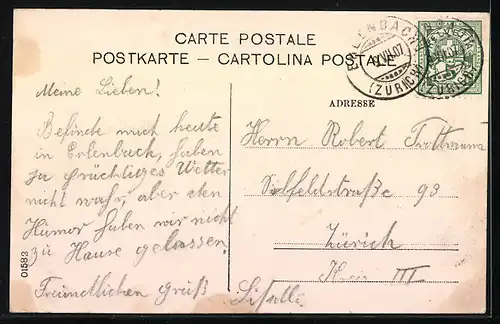 CARTE POSTALE
POSTKARTE – CARTOLINA POSTALE
ERLENBACH
VIII.07
(ZÜRICH)
HELVETIA
ADRESSE
Meine Lieben!
Befinde mich heute
in Erlenbach, haben
ja prächtiges Wetter
nicht wahr, aber den
Humor haben wir nicht
zu Hause gelassen.
Freundlichen Gruß
Herrn Robert
Sihlfeldstraße 98
Zürich
Kreis III
01583